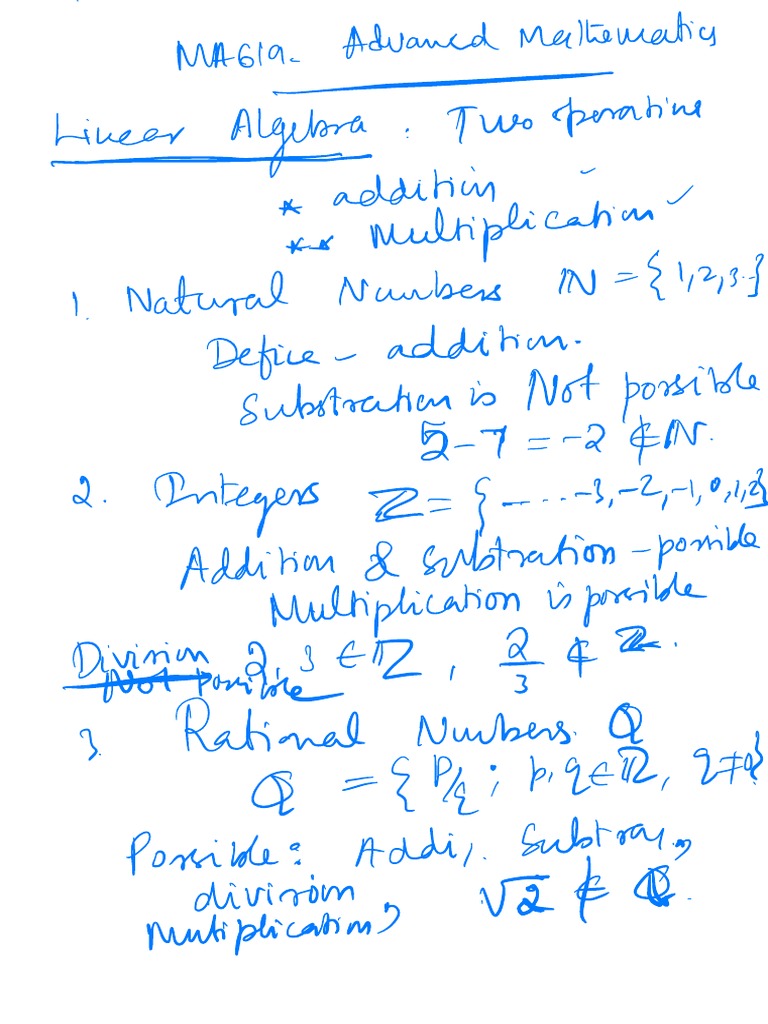 MA619- Advanced Mathematics
Linear Algebra. Two operations
* addition
** Multiplication ✓
1. Natural Numbers ℕ = {1,2,3..}
Define - addition.
Substraction is Not possible
5-7 = -2 ∉ ℕ.
2. Integers ℤ = {.....-3,-2,-1,0,1,2}
Addition & substration - possible
Multiplication is possible
Division 2,3 ∈ ℤ, 2/3 ∉ ℤ.
Not possible
3. Rational Numbers. ℚ
ℚ = {p/q ; p,q ∈ ℤ, q≠0}
Possible: Addi,. Substra,,
division
Mutiplication, √2 ∉ ℚ.